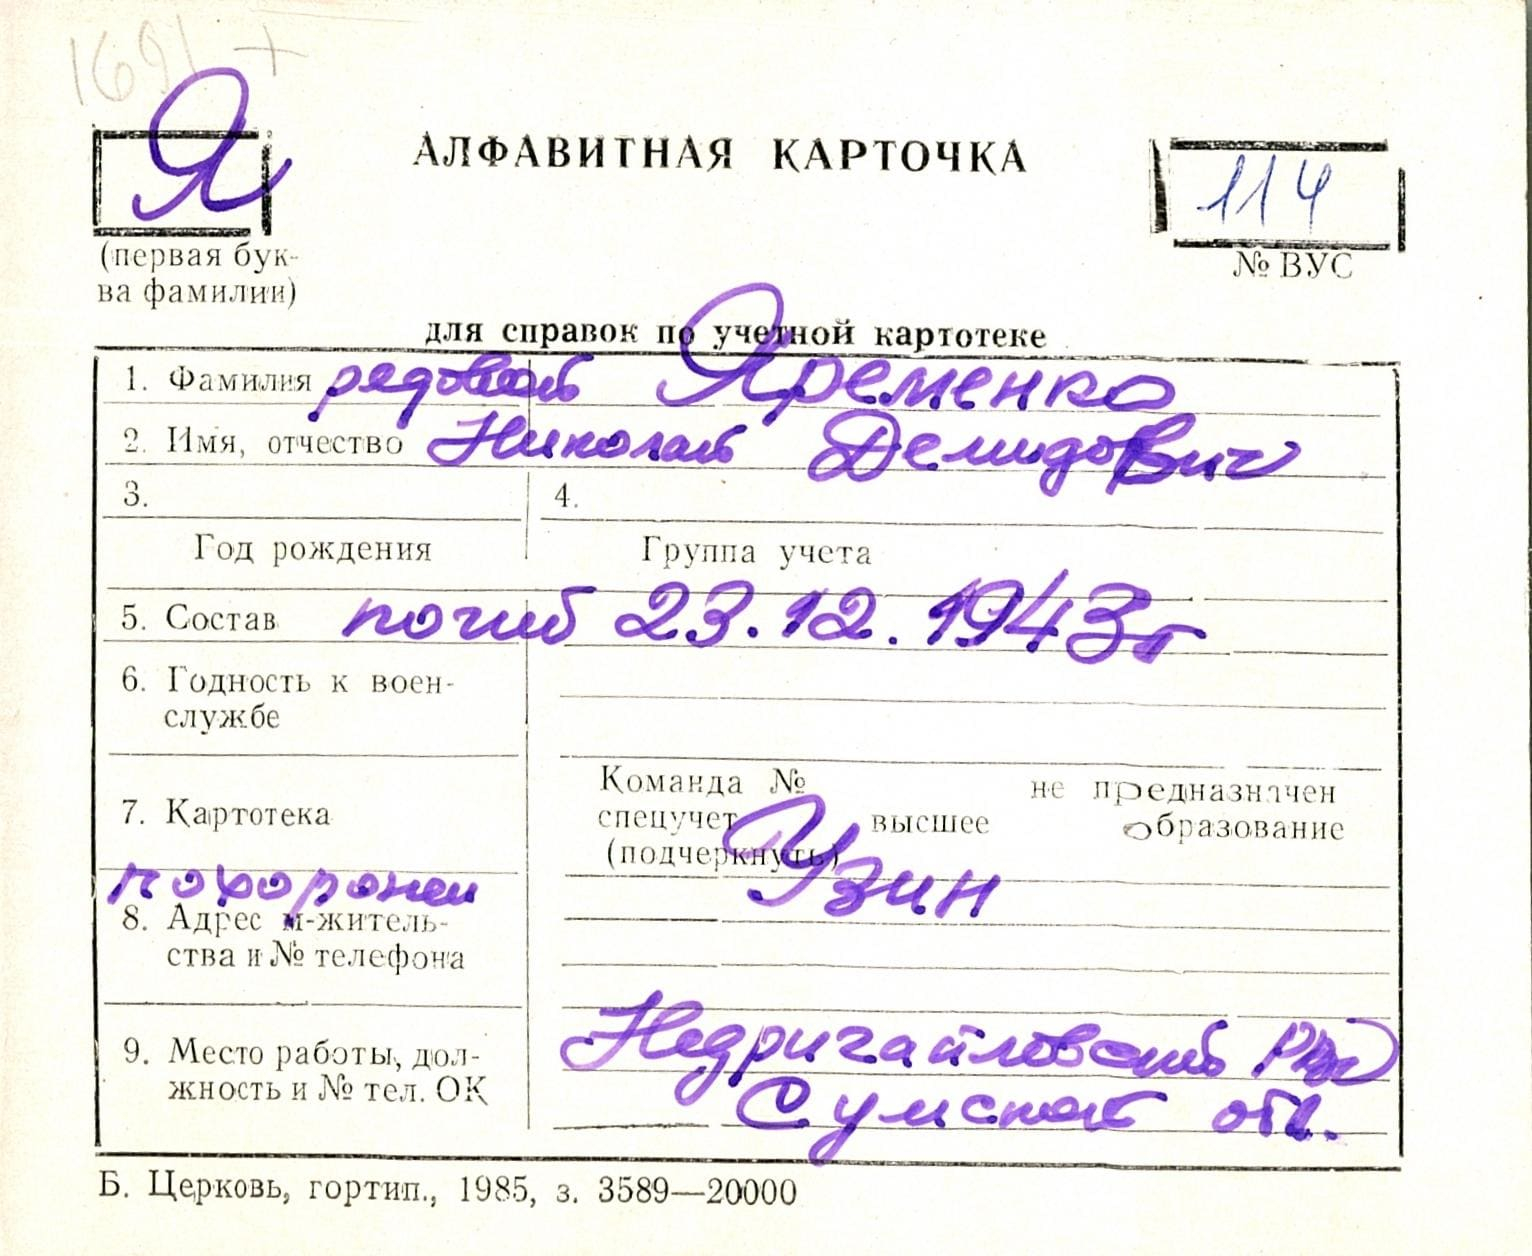 1691 +
Я
АЛФАВИТНАЯ КАРТОЧКА
114
(первая бук-
ва фамилии)
№ ВУС
для справок по учетной картотеке
1. Фамилия рядовой Яременко
2. Имя, отчество Николай Демидович
3.
4.
Год рождения
Группа учета
5. Состав погиб 23.12.1943г
6. Годность к воен-
службе
7. Картотека
Команда № не предназначен
спецучет высшее образование
(подчеркнуть)
похоронен Узин
8. Адрес м-житель-
ства и № телефона
9. Место работы, дол-
жность и № тел. ОК
Недригайловский РВК
Сумской обл.
Б. Церковь, гортип., 1985, з. 3589—20000